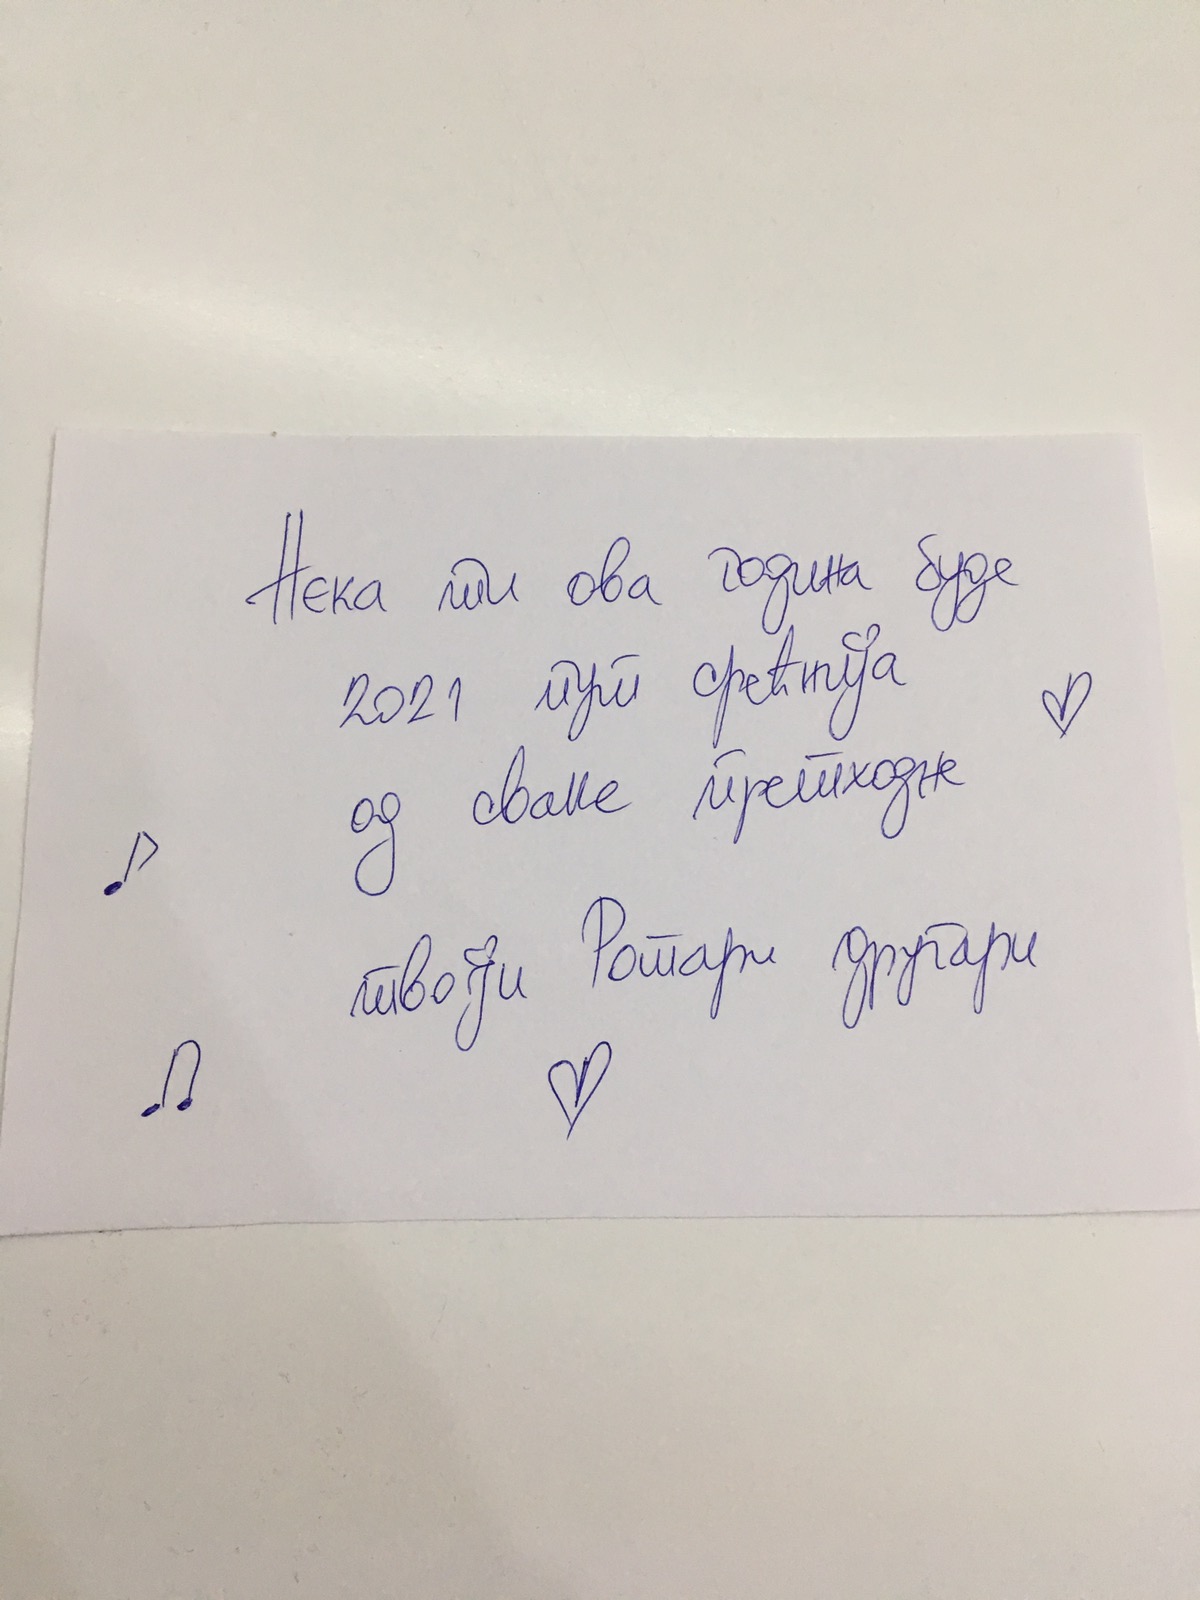 Нека ти ова година буде
2021 пут срећнија
од сваке претходне
твоји Ротари другари